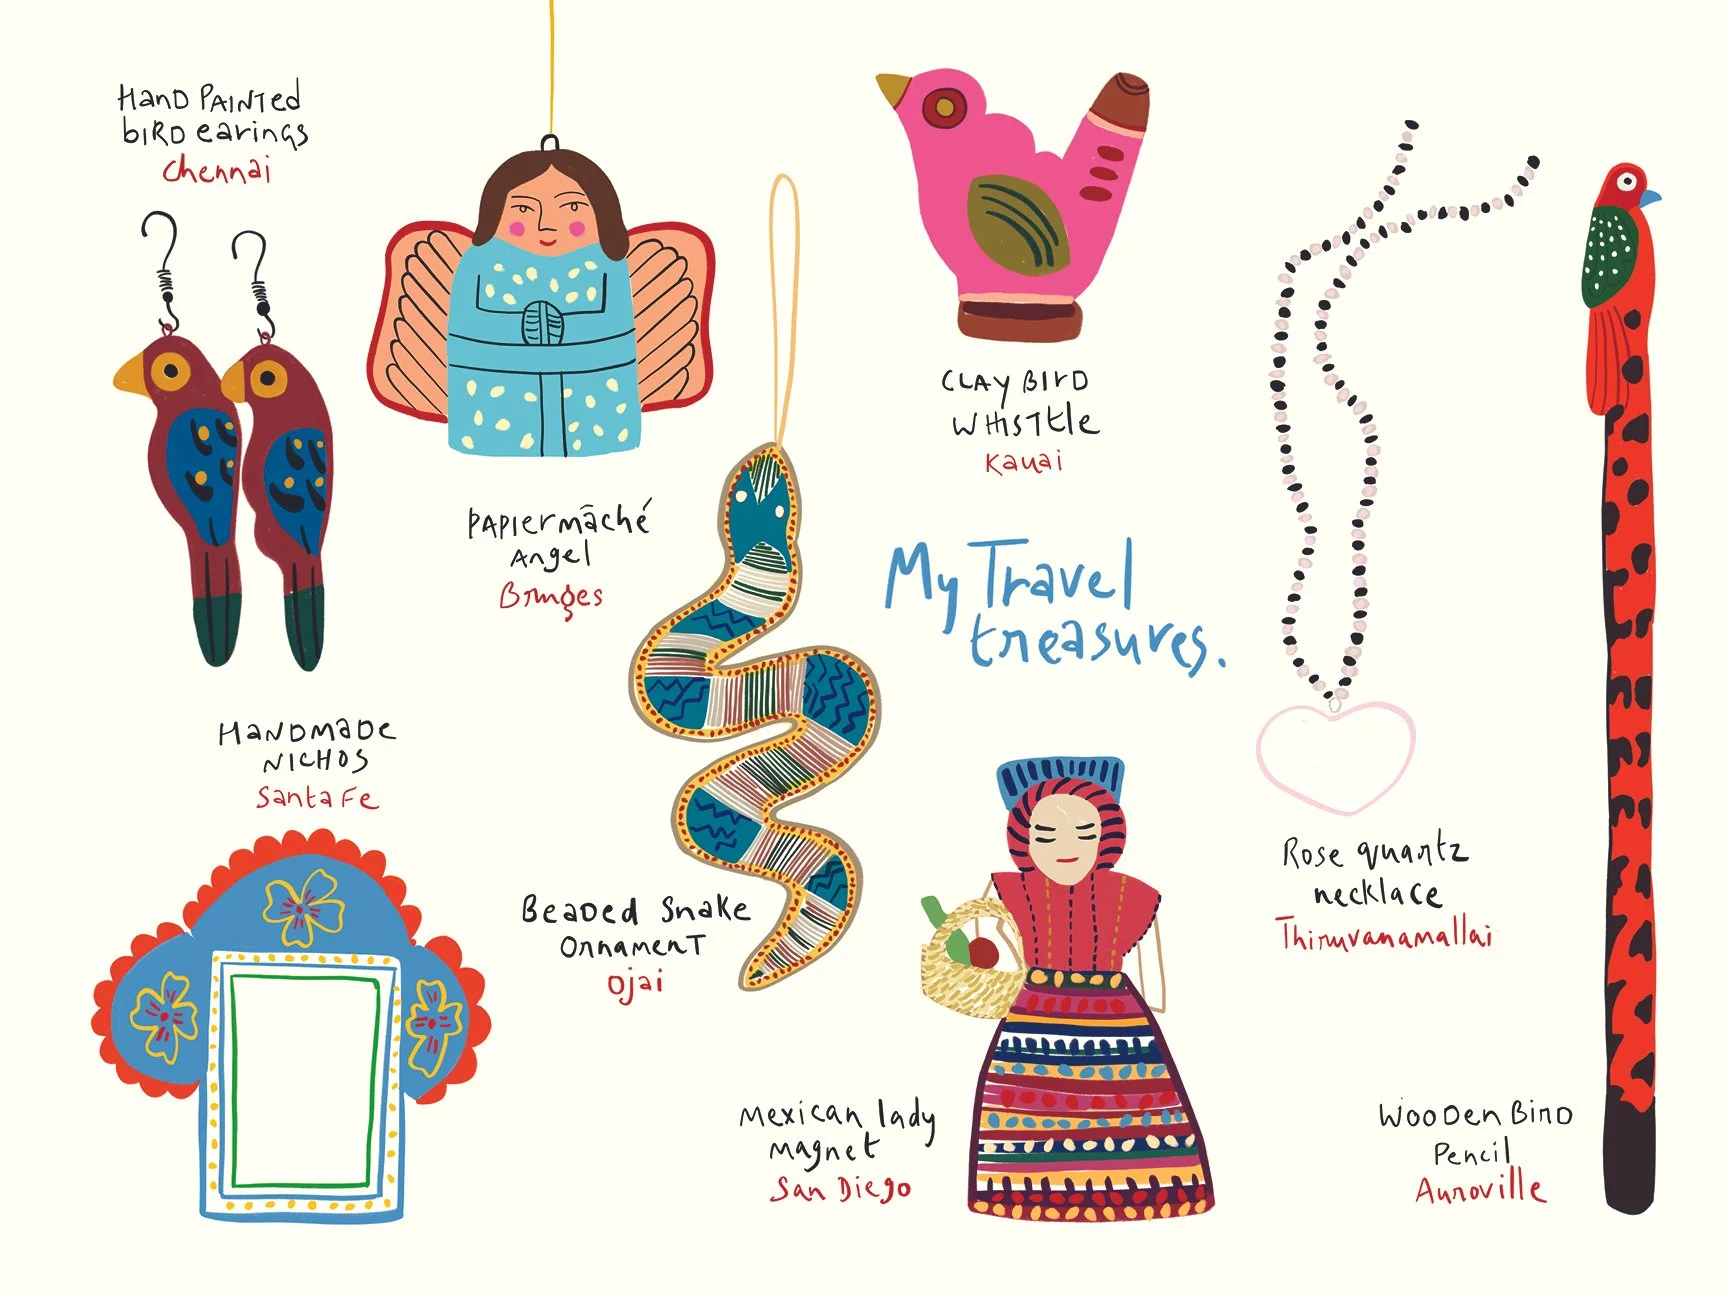 Hand Painted
bird earings
Chennai
Papiermâché
Angel
Bruges
Clay Bird
Whistle
Kauai
My Travel
treasures.
Handmade
Nichos
Santa Fe
Beaded Snake
Ornament
Ojai
Rose quartz
necklace
Thiruvanamallai
Mexican lady
magnet
San Diego
Wooden Bird
Pencil
Auroville